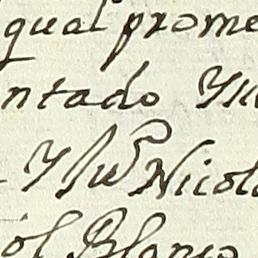 qual prome
ntado Yll
Nicol
ol Blanco